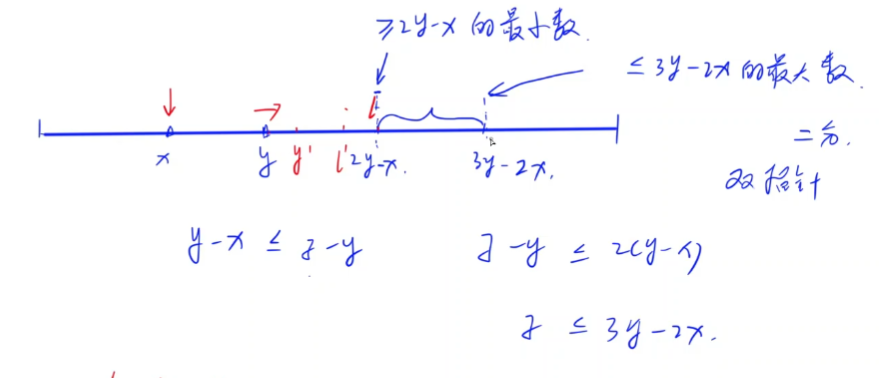 ≥2y-x 的最小数.
≤ 3y-2x 的最大数.
l
x y y' l' 2y-x. 3y-2x.
二分.
双指针
y-x ≤ z-y z-y ≤ 2(y-x)
z ≤ 3y-2x.